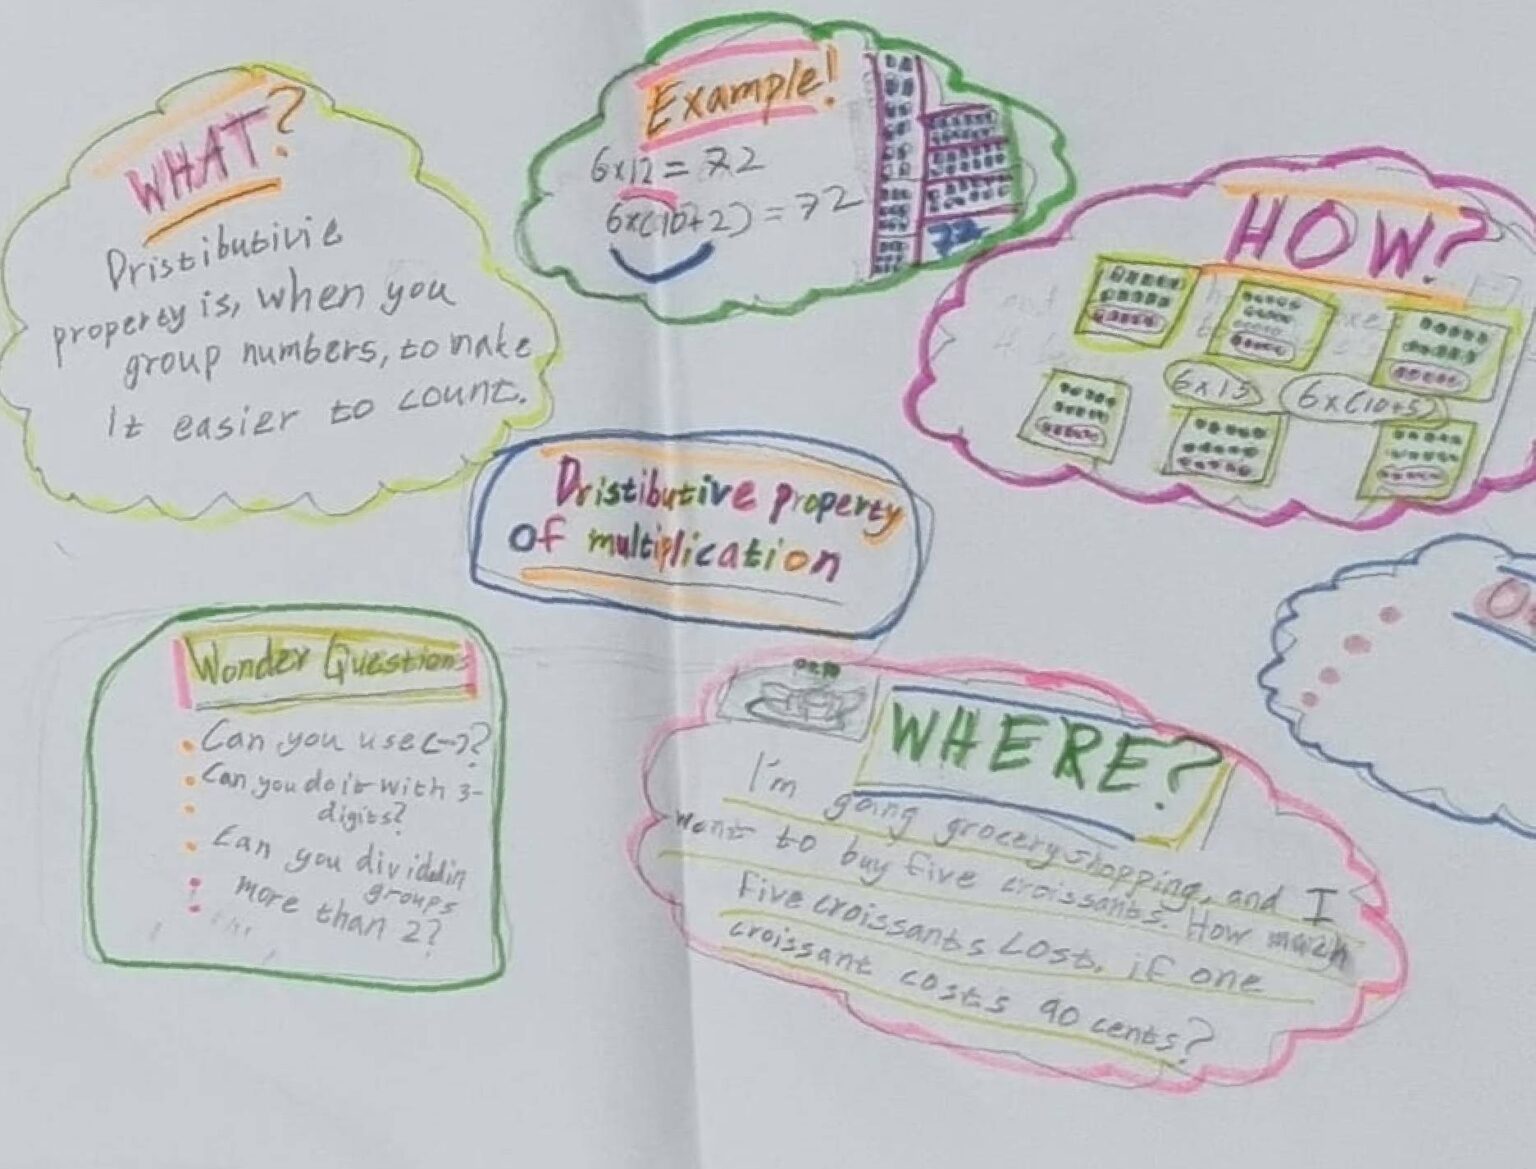 WHAT?
Dristibutivie
property is, when you
group numbers, to make
it easier to count.
Example!
6x12 = 72
6x(10+2) = 72
72
HOW?
6x15
6x(10+5)
Dristibutive property
of multiplication
Wonder Questions
Can you use (-)?
Can you do it with 3-
digits?
Can you divide in
groups
more than 2?
WHERE?
I'm going grocery shopping, and I
want to buy five croissants. How much
five croissants cost, if one
croissant costs 90 cents?